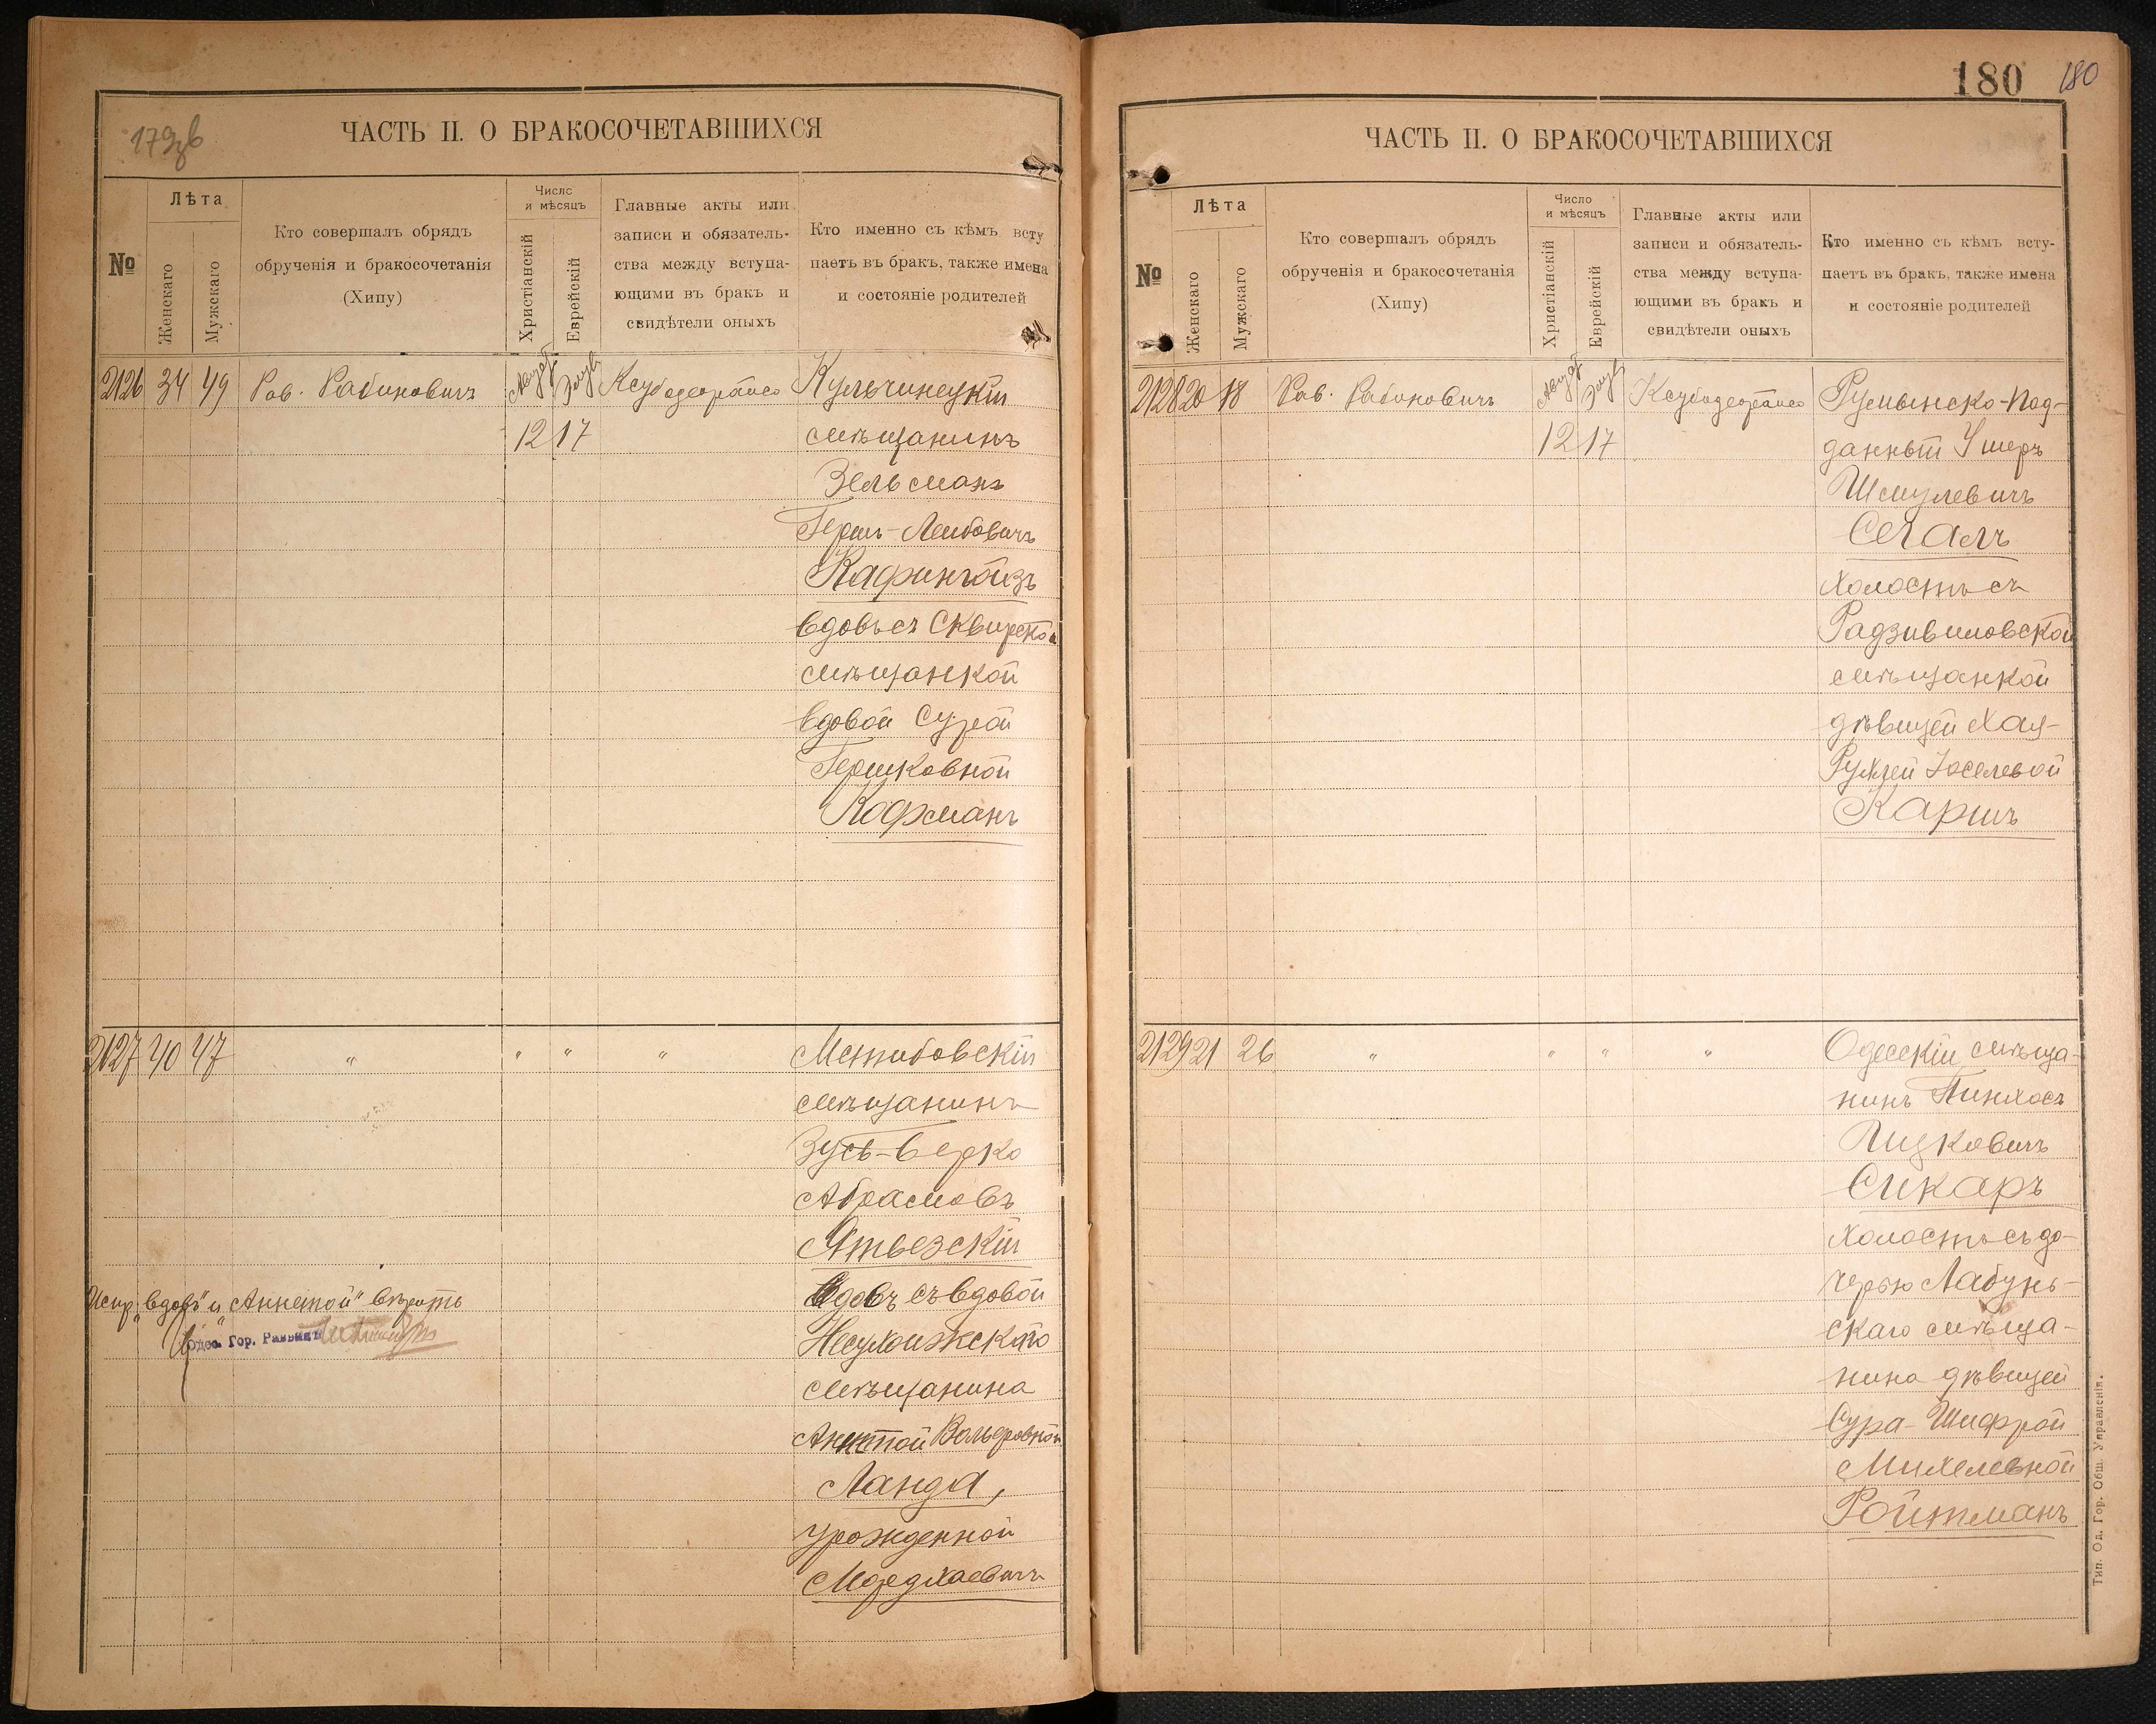 179об
ЧАСТЬ II. О БРАКОСОЧЕТАВШИХСЯ
№
Лѣта
Женскаго
Мужскаго
Кто совершалъ обрядъ
обрученія и бракосочетанія
(Хипу)
Число
и мѣсяцъ
Христіанскій
Еврейскій
Главные акты или
записи и обязатель-
ства между вступа-
ющими въ бракъ и
свидѣтели оныхъ
Кто именно съ кѣмъ всту
паетъ въ бракъ, также имена
и состояніе родителей
2126 34 49 Рав. Рабиновичъ
12 17
Кульчинецкій
мѣщанинъ
Зельманъ
Гершъ-Лейбовичъ
вдовъ съ Сквирской
мѣщанкой
вдовой Сурой
Гершковной
Кофманъ
2127 40 47 " " " "
Меджибовскій
мѣщанинъ
Зусь-Берко
Абрамовъ
Ятвезскій
вдовъ съ вдовой
мѣщанина
Аннетой Вольфовной
Ланда,
урожденной
Мордхаевичъ
Испр. "вдовъ" и "Аннетой" вѣрить
Одес. Гор. Раввинъ
180 180
ЧАСТЬ II. О БРАКОСОЧЕТАВШИХСЯ
№
Лѣта
Женскаго
Мужскаго
Кто совершалъ обрядъ
обрученія и бракосочетанія
(Хипу)
Число
и мѣсяцъ
Христіанскій
Еврейскій
Главные акты или
записи и обязатель-
ства между вступа-
ющими въ бракъ и
свидѣтели оныхъ
Кто именно съ кѣмъ всту-
паетъ въ бракъ, также имена
и состояніе родителей
2128 20 18 Рав. Рабиновичъ
12 17
Румынско-Под-
данный Ушеръ
Шмулевичъ
Сегалъ
холостъ съ
Радзивиловской
мѣщанкой
дѣвицей Хая-
Рухлей Іоселевой
Каршъ
2129 21 26 " " " "
Одесскій мѣща-
нинъ Пинхосъ
Ицковичъ
Сикаръ
холостъ съ до-
черью Лабунь-
скаго мѣща-
нина дѣвицей
Сура-Шифрой
Михелевной
Ройтманъ
Тип. Од. Гор. Общ. Управленія.